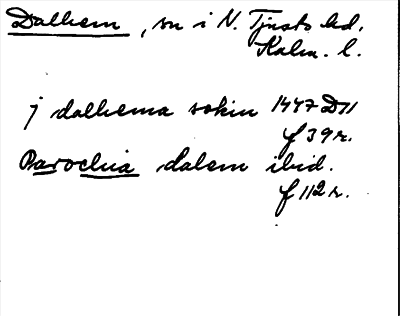 Dalhem, sn i N. Tjusts hd.
Kalm. l.
j dalhema sokin 1447 D11
f 39 r.
Parochia dalem ibid.
f 112 r.